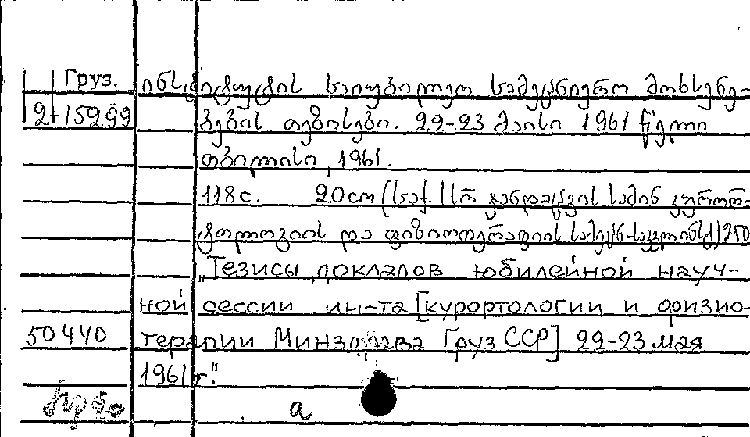 Груз. ინსტიტუტის საიუბილეო სამეცნიერო მოხსენე-
2-15299 ბების თეზისები. 22-23 მაისი 1961 წელი
თბილისი, 1961.
118с. 20см (საქ. სსრ ჯანდაცვის სამინ კურორ-
ტოლოგიის და ფიზიოთერაპიის 250
„Тезисы докладов юбилейной науч-
ной сессии ин-та [курортологии и физио-
50440 терапии Минздрава Груз ССР] 22-23 мая
1961 г."
а